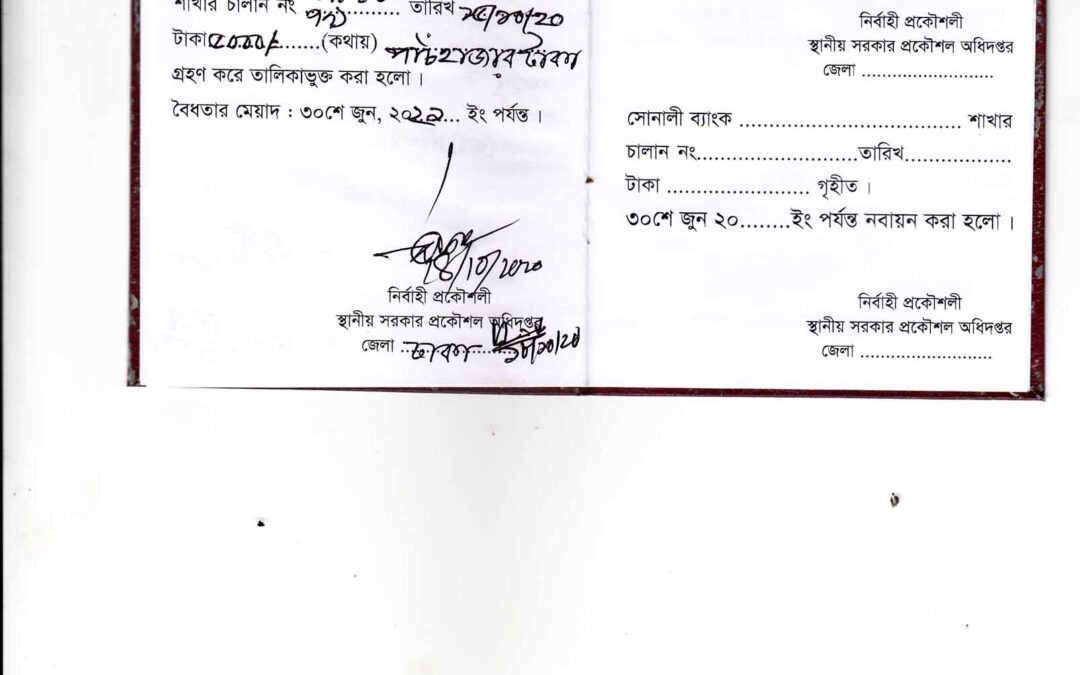 শাখার চালান নং ............ তারিখ ২৫/১০/২০
টাকা ৫০০০/-.......(কথায়) পাঁচ হাজার টাকা
গ্রহণ করে তালিকাভুক্ত করা হলো ।
বৈধতার মেয়াদ : ৩০শে জুন, ২০২১... ইং পর্যন্ত ।
/10/2020
নির্বাহী প্রকৌশলী
স্থানীয় সরকার প্রকৌশল অধিদপ্তর
জেলা ..ঢাকা............
নির্বাহী প্রকৌশলী
স্থানীয় সরকার প্রকৌশল অধিদপ্তর
জেলা ..........................
সোনালী ব্যাংক ........................................... শাখার
চালান নং...............................তারিখ.....................
টাকা ............................ গৃহীত ।
৩০শে জুন ২০........ইং পর্যন্ত নবায়ন করা হলো ।
নির্বাহী প্রকৌশলী
স্থানীয় সরকার প্রকৌশল অধিদপ্তর
জেলা ..........................